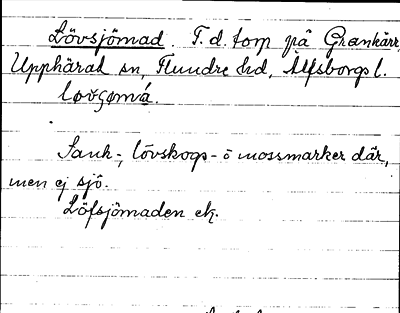 Lövsjömad. F.d. torp på Grankärr,
Upphärad sn, Flundre hd, Älfsborgs l.
løvʃømá.
Sank-, lövskogs- o mossmarker där,
men ej sjö.
Löfsjömaden ek.